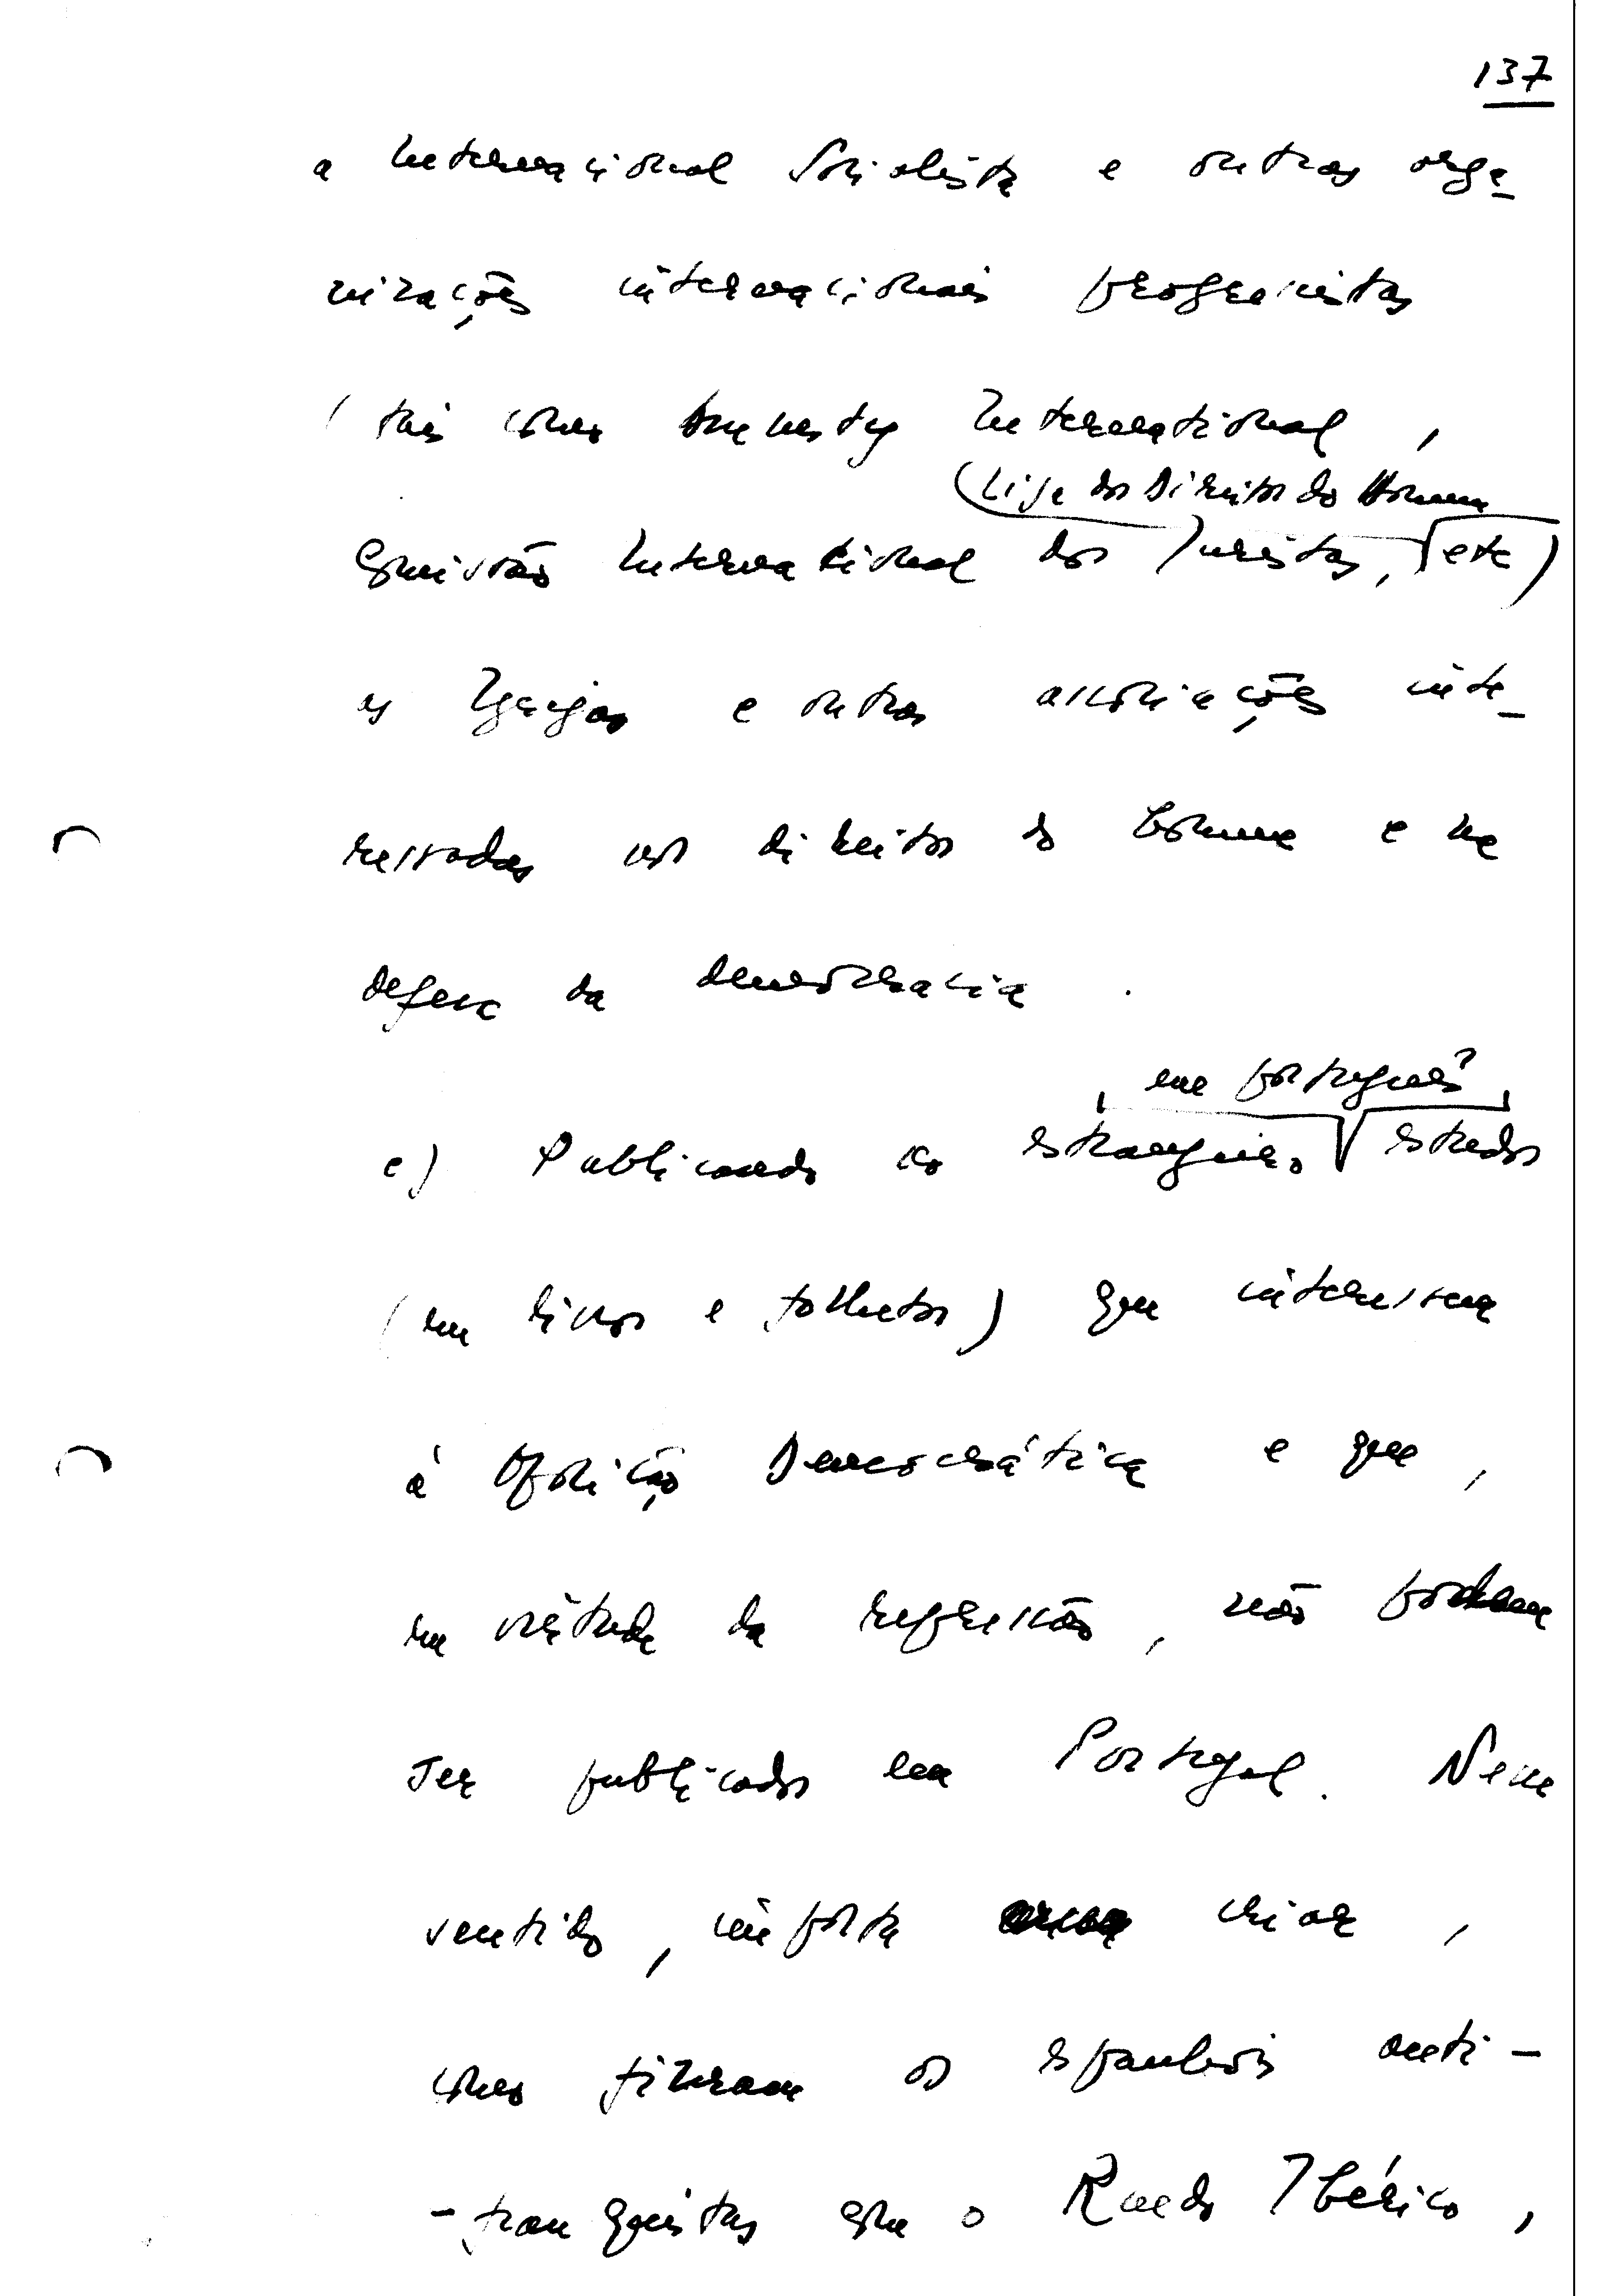 137
a Internacional Socialista e outras orga-
nizações internacionais progressistas
(tais como Amnesty International,
Liga dos Direitos do Homem
Comissão International dos Juristas, etc)
as Igrejas e outras associações inte-
ressadas nos direitos do homem e na
defesa da democracia.
, em português,
c) Publicando no estrangeiro estudos
(em livros e folhetos) que interessem
à Oposição Democrática e que,
em virtude da repressão, não podem
ser publicados em Portugal. Nesse
sentido, importa criar,
como fizeram os espanhóis anti-
-franquistas com o Ruedo Ibérico,